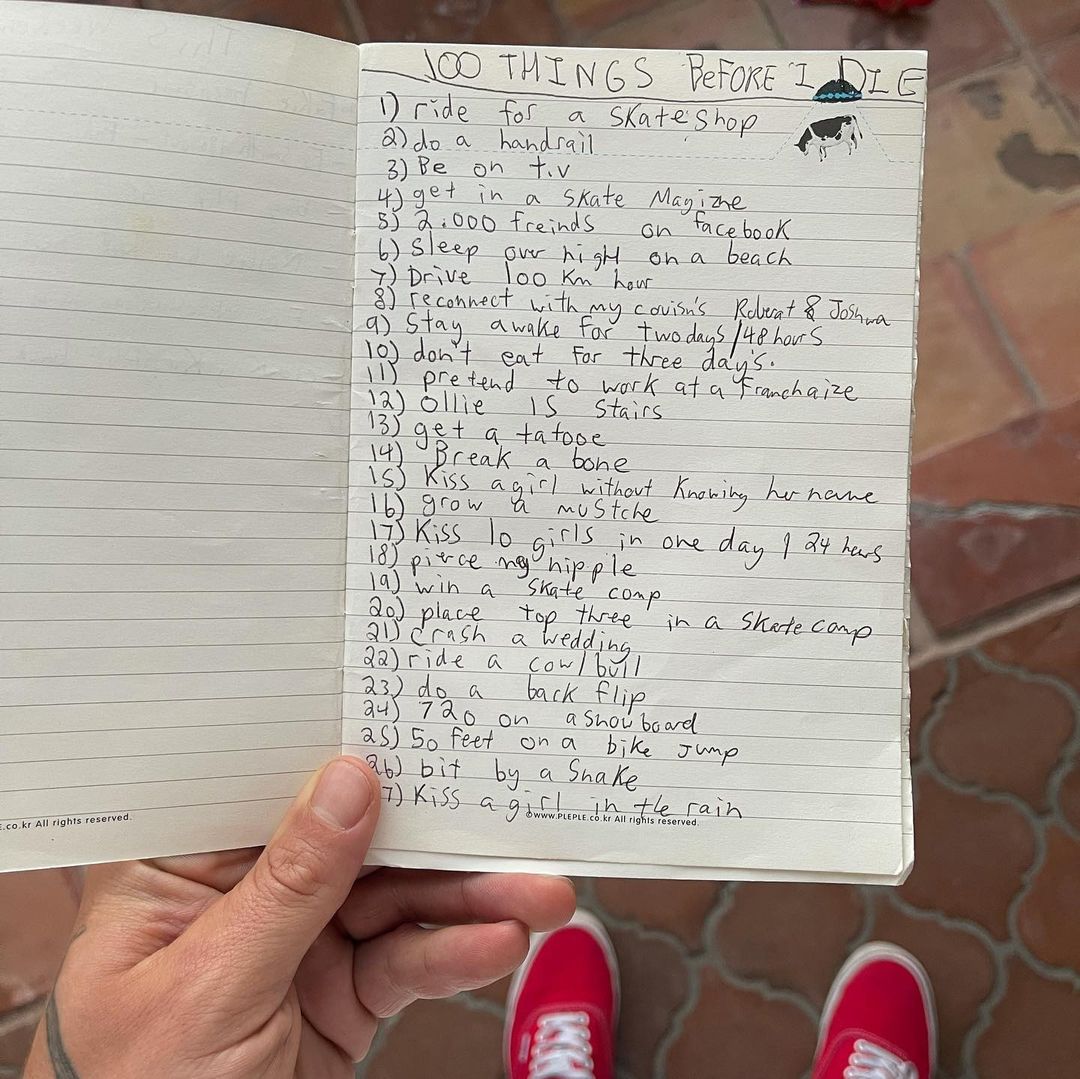 100 THINGS BeFORE I DIE
1) ride for a skateshop
2) do a handrail
3) Be on t.v
4) get in a skate Magizne
5) 2.000 freinds on facebook
6) Sleep over night on a beach
7) Drive 100 Km hour
8) reconnect with my couisn's Roberat & Joshwa
9) Stay awake for two days / 48 hours
10) don't eat for three day's.
11) pretend to work at a Franchaize
12) Ollie 15 stairs
13) get a tatooe
14) Break a bone
15) Kiss a girl without Knowing her name
16) grow a mustche
17) Kiss 10 girls in one day / 24 hours
18) pierce my nipple
19) win a skate comp
20) place top three in a skate comp
21) crash a wedding
22) ride a cow/bull
23) do a back flip
24) 720 on a snowboard
25) 50 feet on a bike jump
26) bit by a snake
7) Kiss a girl in the rain
E.co.kr All rights reserved.
©www.PLEPLE.co.kr All rights reserved.